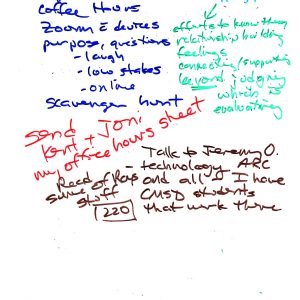 Coffee Hours
Zoom E devices
purpose, questions
- laugh
- low stakes
- online
Scavenger hunt
efforts to know them,
relationship building
feelings
connecting/supporting
beyond judging
which is
evaluating
Send
Kent + Joni
my office hours sheet
Talk to Jeremy O.
- technology ARC
and all I have
CMSD students
that work there
Read of
some
stuff
220